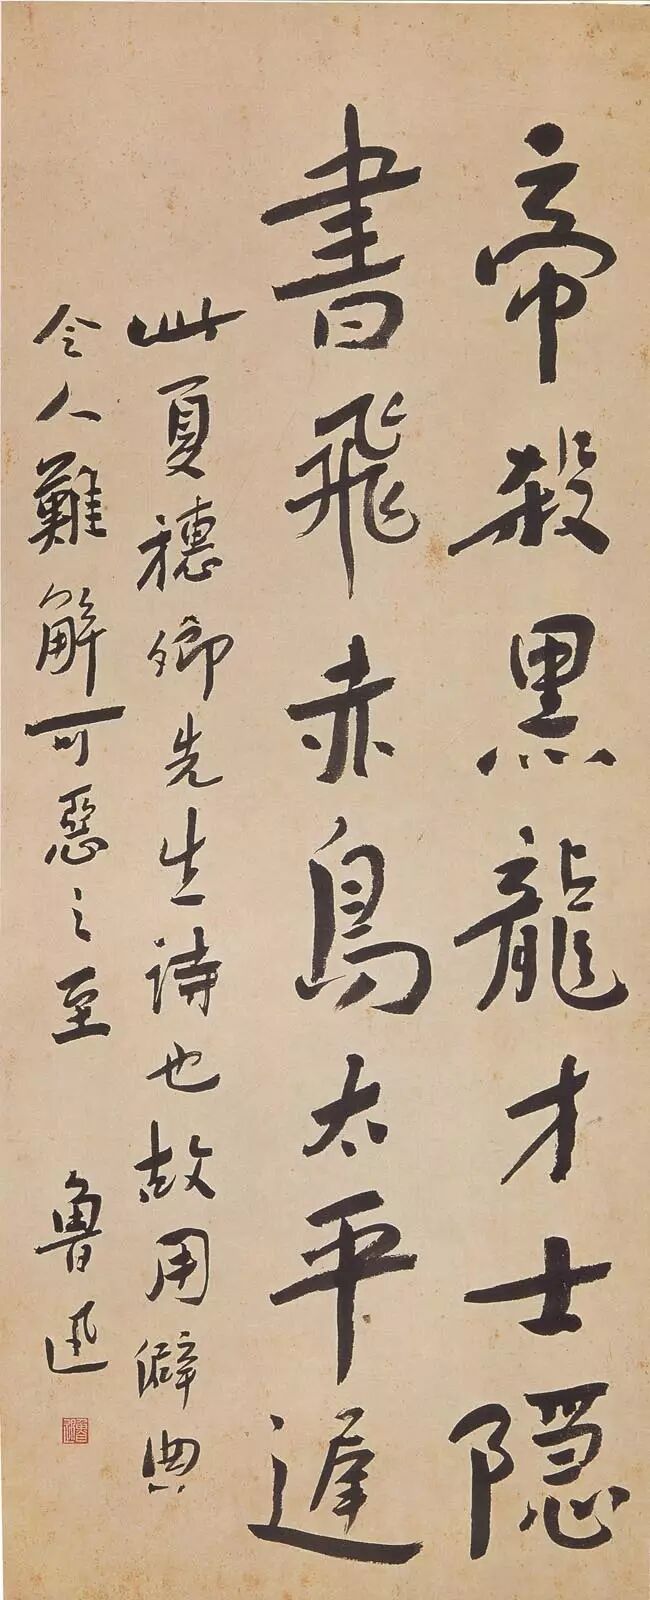 帝殺黑龍才士隱
書飛赤鳥太平遲
此夏穗卿先生詩也故用僻典
令人難解可惡之至 魯迅
魯迅